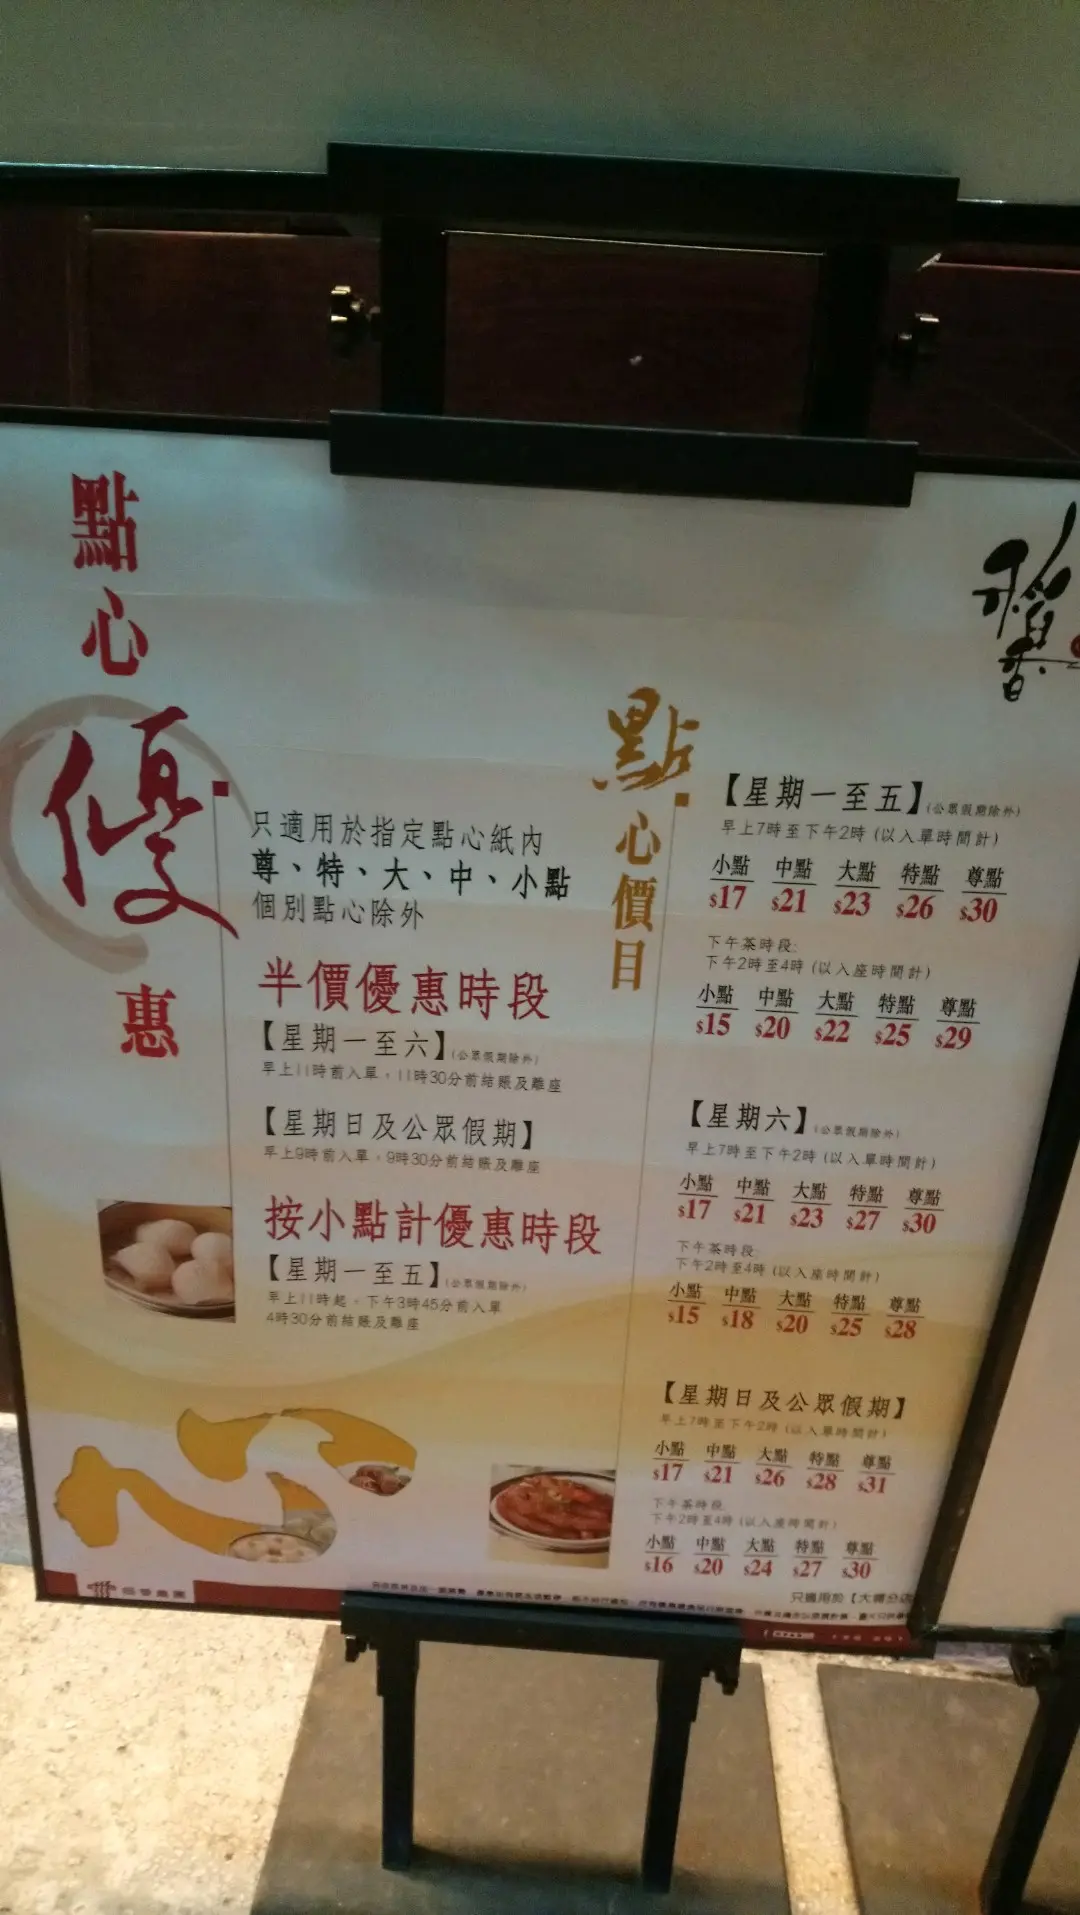 點心優惠
只適用於指定點心紙內
尊、特、大、中、小點
個別點心除外
半價優惠時段
【星期一至六】(公眾假期除外)
早上11時前入單，11時30分前結賬及離座
【星期日及公眾假期】
早上9時前入單，9時30分前結賬及離座
按小點計優惠時段
【星期一至五】(公眾假期除外)
早上11時起，下午3時45分前入單
4時30分前結賬及離座
點心價目
【星期一至五】(公眾假期除外)
早上7時至下午2時 (以入單時間計)
小點 中點 大點 特點 尊點
$17 $21 $23 $26 $30
下午茶時段:
下午2時至4時 (以入座時間計)
小點 中點 大點 特點 尊點
$15 $20 $22 $25 $29
【星期六】(公眾假期除外)
早上7時至下午2時 (以入單時間計)
小點 中點 大點 特點 尊點
$17 $21 $23 $27 $30
下午茶時段:
下午2時至4時 (以入座時間計)
小點 中點 大點 特點 尊點
$15 $18 $20 $25 $28
【星期日及公眾假期】
早上7時至下午2時 (以入單時間計)
小點 中點 大點 特點 尊點
$17 $21 $26 $28 $31
下午茶時段:
下午2時至4時 (以入座時間計)
小點 中點 大點 特點 尊點
$16 $20 $24 $27 $30
只適用於